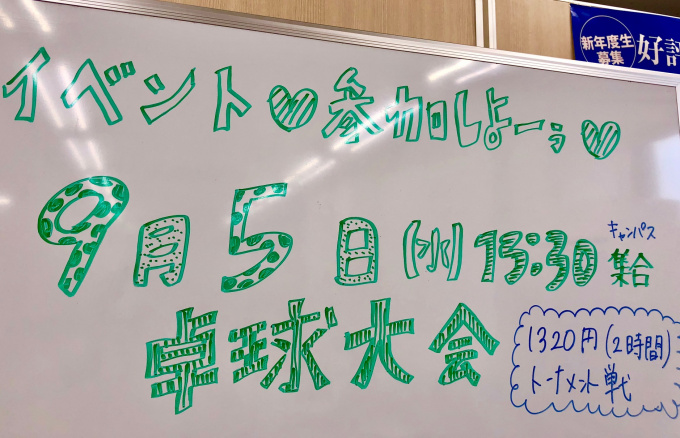 新年度生
募集
好評
イベント♡参加しよーぅ♡
9月5日(水)13:30
キャンパス
集合
卓球大会
1320円(2時間)
トーナメント戦